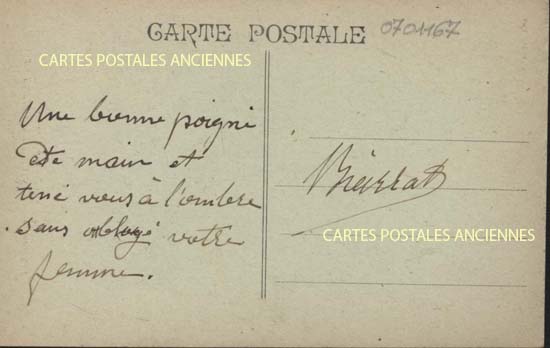 CARTE POSTALE
0701167
CARTES POSTALES ANCIENNES
Une bonne poigné
de main et
tené vous à l'ombre
sans votre
femme.
CARTES POSTALES ANCIENNES